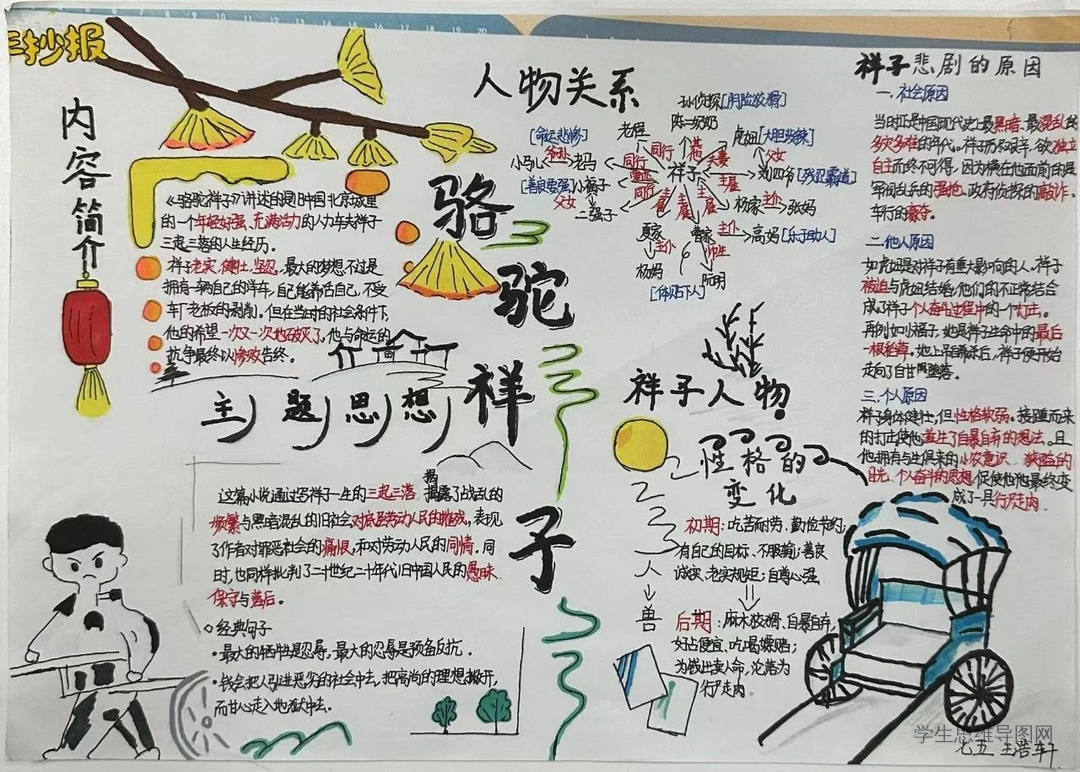 手抄报
内容简介
《骆驼祥子》讲述的是旧中国北京城里
的一个年轻好强、充满活力的人力车夫祥子
三起三落的人生经历。
祥子老实、健壮、坚忍,最大的梦想不过是
拥有一辆自己的洋车,自己能养活自己,不受
车厂老板的剥削。但在当时的社会条件下,
他的希望一次又一次地破灭了,他与命运的
抗争最终以惨败告终。
骆驼祥子
主题思想
这篇小说通过写祥子一生的三起三落,揭露了战乱的
频繁与黑暗混乱的旧社会对底层劳动人民的摧残,表现
了作者对罪恶社会的痛恨,和对劳动人民的同情。同
时,也同样批判了二十世纪二十年代旧中国人民的愚昧、
保守与落后。
经典句子
·最大的牺牲是忍辱,最大的忍辱是预备反抗.
·钱会把人引进恶劣的社会中去,把高尚的理想撇开,
而甘心走入地狱中去。
人物关系
孙侦探[阴险狡猾]
陈二奶奶
老程
虎妞[大胆泼辣]
[命运悲惨]
小马儿
爷孙
老马
同行
同行
夫妻
父女
祥子
刘四爷[残忍霸道]
[善良要强]小福子
父女
二强子
同行
雇主
雇主
雇主
杨家
主仆
张妈
夏家
主仆
杨妈
曹家
主仆
高妈[乐于助人]
师生
阮明
[体贴下人]
祥子人物
性格的
变化
人
兽
初期:吃苦耐劳;勤俭节约;
有自己的目标、不服输;善良
诚实、老实规矩;自尊心强
后期:麻木狡猾、自暴自弃,
好占便宜、吃喝嫖赌;
为钱出卖人命,沦落为
行尸走肉
祥子悲剧的原因
一.社会原因
当时正是中国现代史上最黑暗、最混乱的
多灾多难的年代。祥子历尽艰辛,欲独立
自主而终不可得,因为横在他面前的是
军阀乱兵的强抢、政府侦探的敲诈、
车行的豪夺。
二.他人原因
如虎妞是对祥子有重大影响的人,祥子
被迫与虎妞结婚,他们的不正常结合
成了祥子个人奋斗过程中的一个打击。
再例如小福子,她是祥子生命中的最后
一根稻草。她上吊自杀后,祥子便开始
走向了自甘堕落。
三.个人原因
祥子身体健壮,但性格软弱。接踵而来
的打击使他萌生了自暴自弃的想法。且
他拥有与生俱来的小农意识、狭隘的
目光、个人奋斗的思想,促使他最终变
成了一具行尸走肉.
学生思维导图网
七五 王浩轩